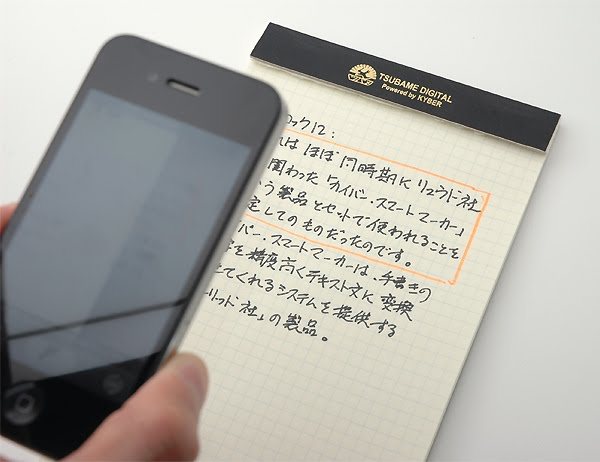 TSUBAME DIGITAL
Powered by KYBER
ロック12：
はほぼ同時期にリュウド社
関わった「カイバー・スマートマーカー」
う製品とセットで使われることを
定してのものだったのです。
バー・スマートマーカーは、手書きの
を精度高くテキスト文に変換
てくれるシステムを提供する
リッド社」の製品。